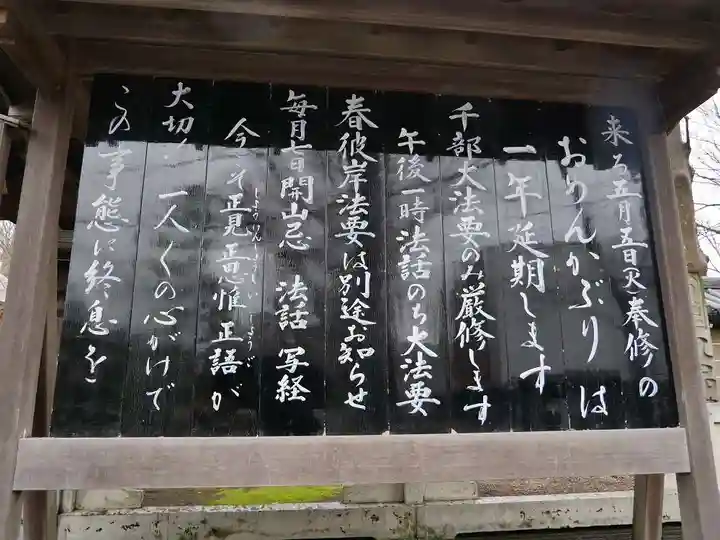 来る五月五日(火)奉修の
おめんかぶりは
一年延期します
千部大法要のみ厳修します
午後一時法話のち大法要
春彼岸法要は別途お知らせ
毎月七日開山忌 法話 写経
今こそ正見正思惟正語が
しょうけんしょうしいしょうご
大切!一人〱の心がけで
この事態に終息を